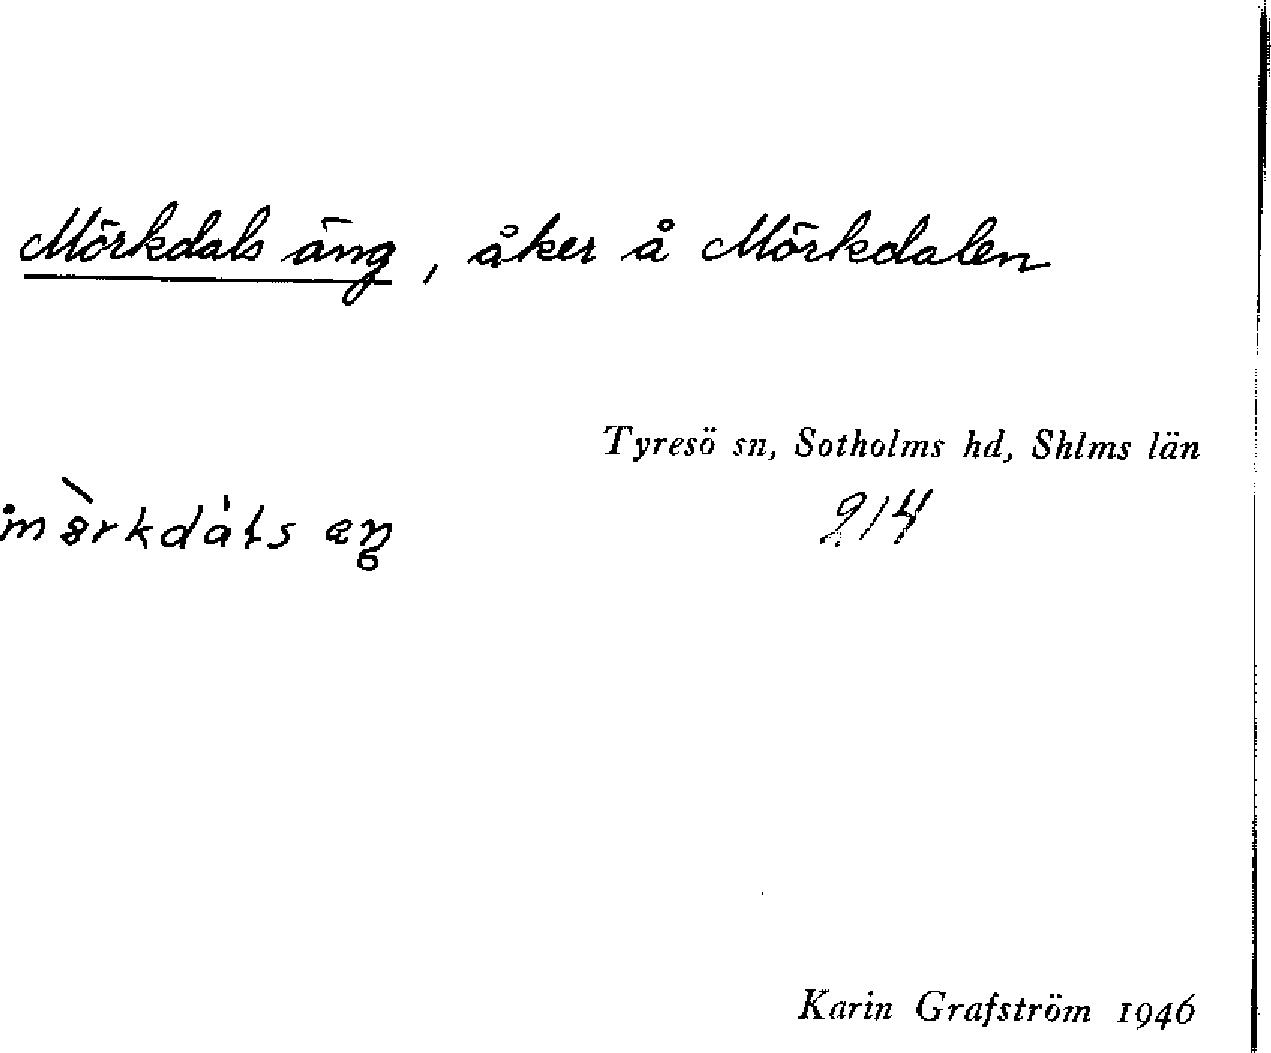 Mörkdals äng, åker å Mörkdalen
Tyresö sn, Sotholms hd, Shlms län
214
Karin Grafström 1946